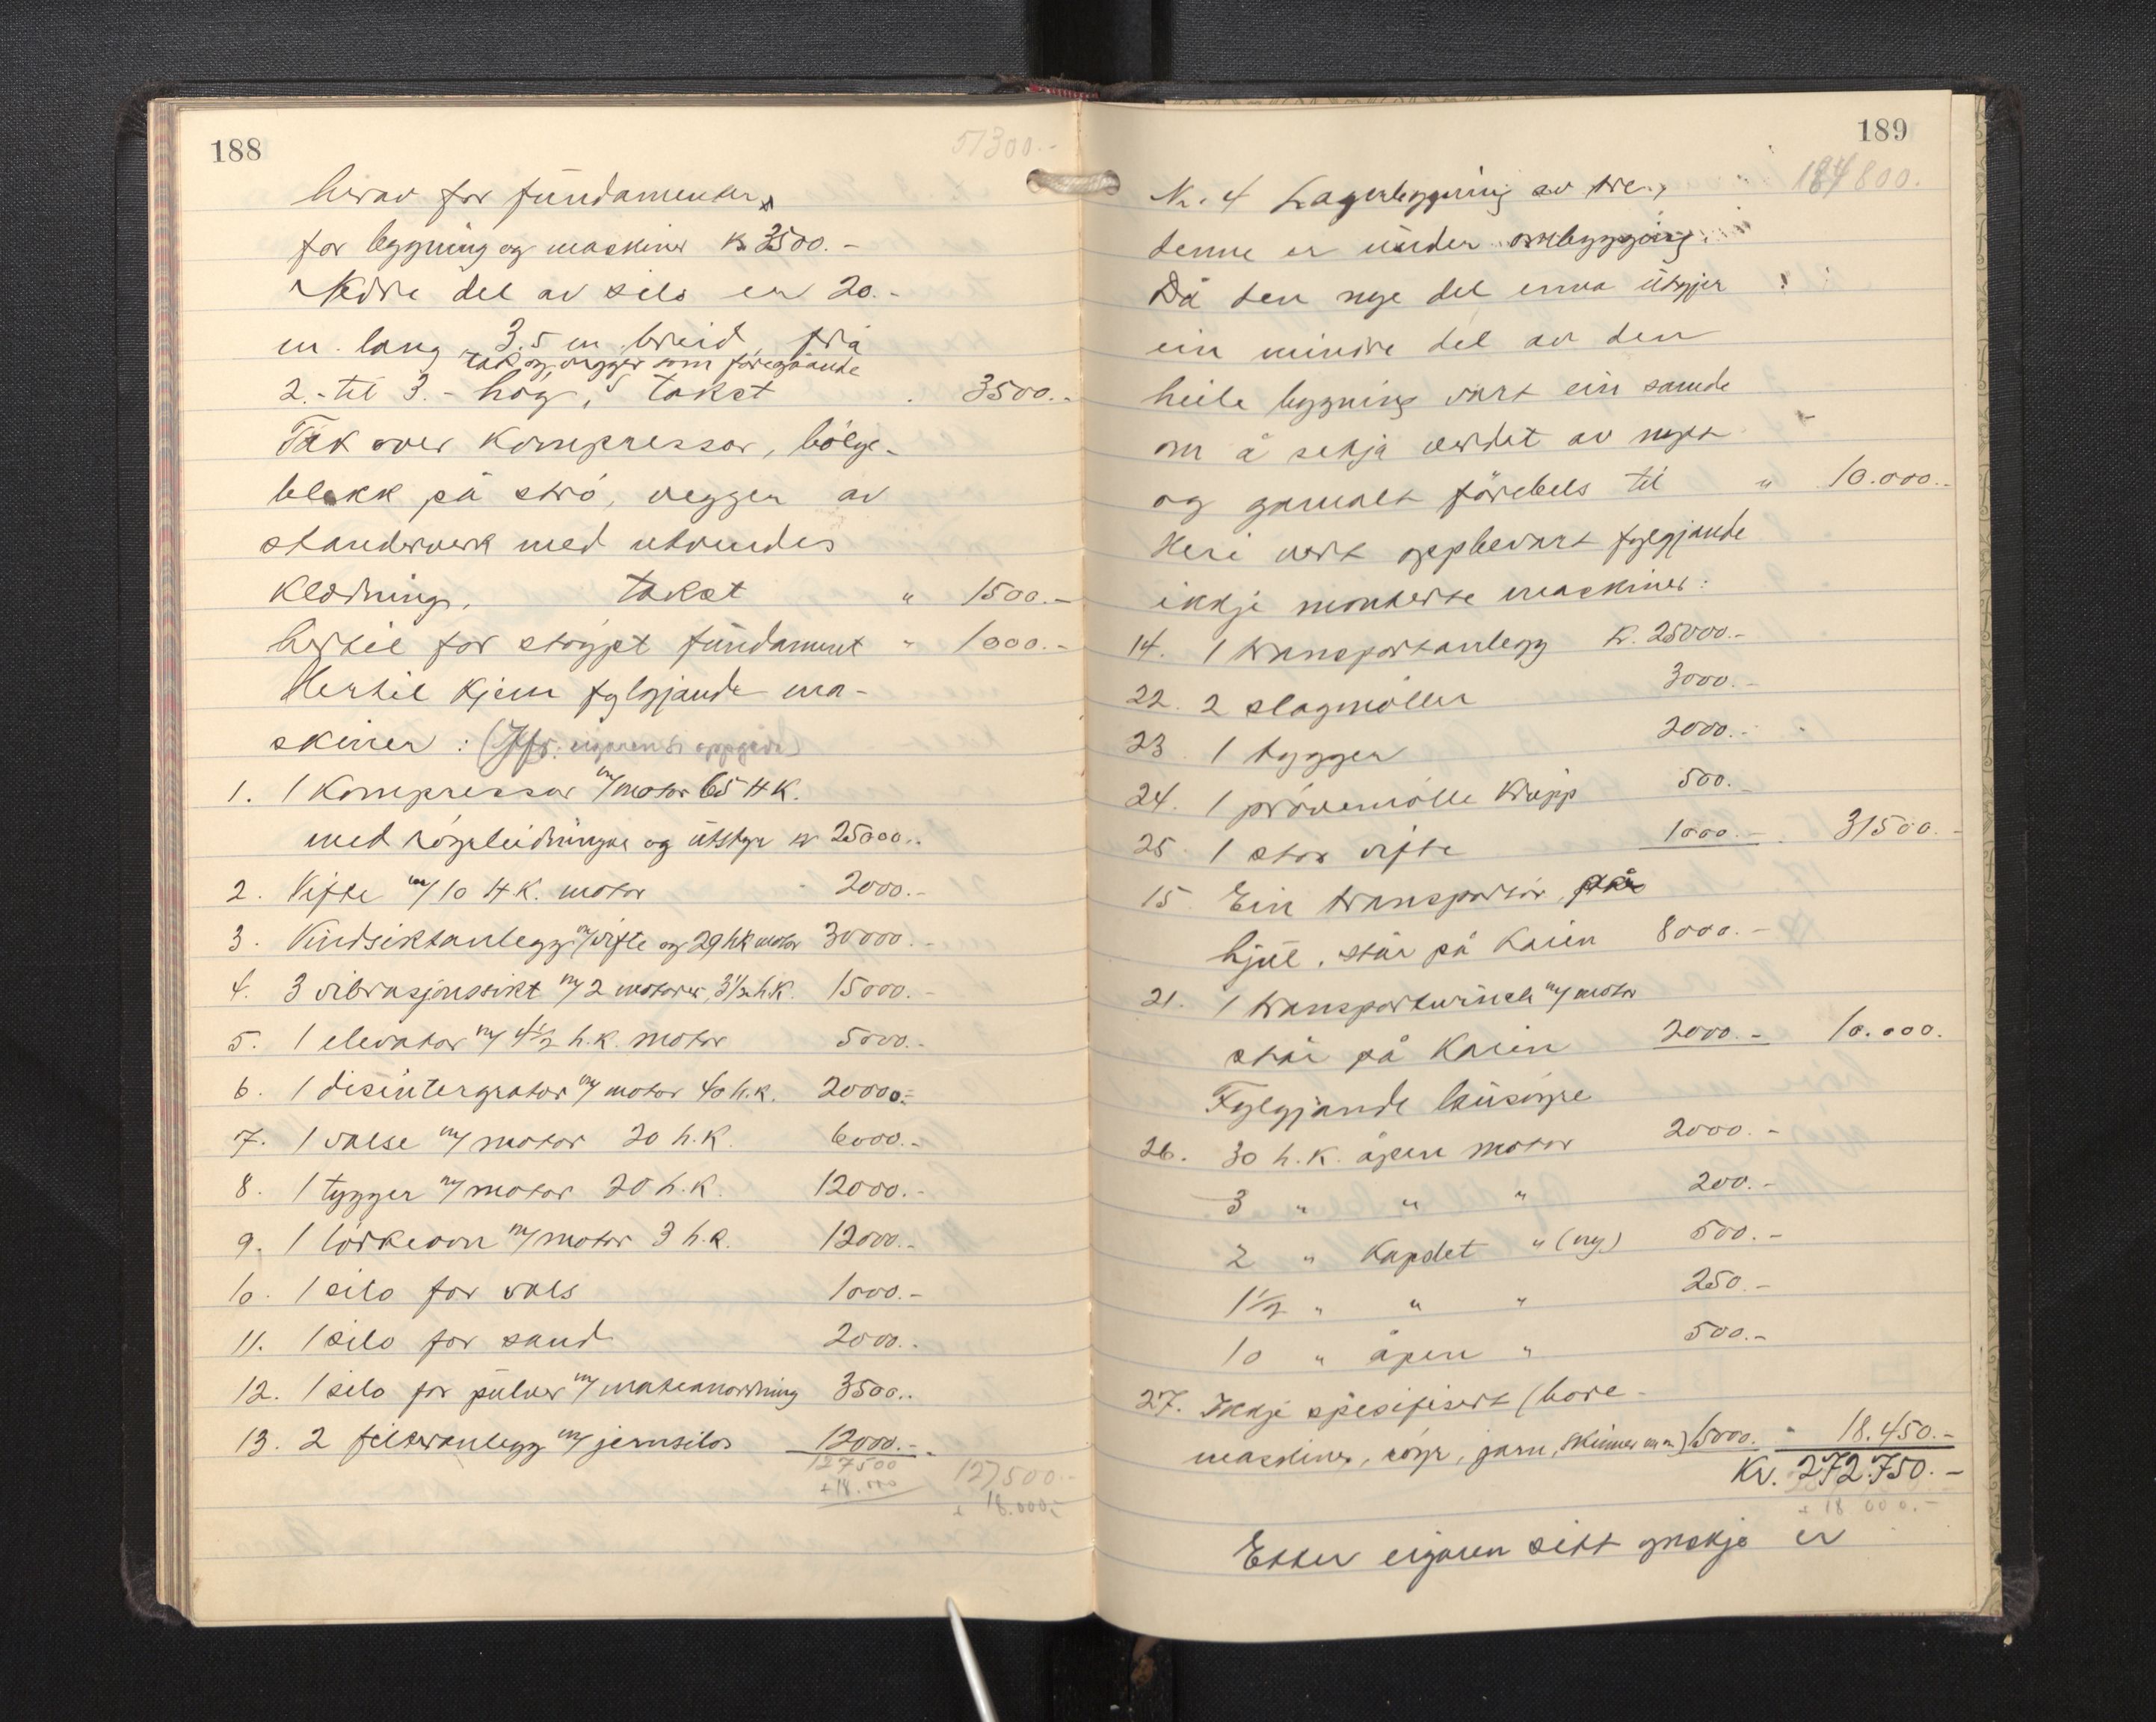 188
51300.-
herav for fundamenter
for bygning og maskiner kr 3500.-
Nedre del av silo er 20.-
m. lang 3.5 m breid, frå
tak og vegger som föregåande
2.- til 3.- høg, takst 3500.-
Tak over kompressor, bölge-
blekk på strö, vegger av
standerverk med utvendes
kledning, takst " 1500.-
hertil for støypt fundament " 1000.-
Hertil kjem fylgjande ma-
skiner : (Jfr. eigarens oppgåve)
1. 1 Kompressor m/motor 65 HK.
med röyrleidningar og utstyr kr 25000.-
2. Vifte m/10 H.K. motor 2000.-
3. Vindsiktanlegg m/vifte og 29 hk motor 30000.-
4. 3 vibrasjonssikt m/2 motorer, 3 1/2 h.k. 15000.-
5. 1 elevator m/ 4 1/2 h.k. motor 5000.-
6. 1 disintergrator m/ motor 40 h.k. 20000.-
7. 1 valse m/ motor 20 h.K. 6000.-
8. 1 tygger m/ motor 20 h.K. 12000.-
9. 1 törkeovn m/ motor 3 h.k. 12000.-
10. 1 silo for vals 1000.-
11. 1 silo for sand 2000.-
12. 1 silo for pulver m/ mateanordning 3500..
13. 2 filteranlegg m/ jernsilos 12000.-
127500 127500.-
+18.000 + 18.000.-
189
184800.
Nr. 4 Lagerbygning av tre,
denne er under ombygging.
Då den nye del enna utgjer
ein mindre del av den
heile bygning vart ein samde
om å setja verdet av nytt
og gamalt förebels til " 10.000.-
Heri vert oppbevart fylgjande
ikkje monterte maskiner:
14. 1 transportanlegg kr. 25000.-
22. 2 slagmöller 3000.-
23 1 tygger 2000.-
24. 1 prövemölle Krupp 500.-
25. 1 stor vifte 1000.- 31500.-
15. Ein transportör, på
hjul, står på kaien 8000.-
21. 1 transportwinch m/ motor
står på Kaien 2000.- 10.000.
Fylgjande lausöyre
26. 30 h.K. åpen motor 2000.-
3 " " " 200.-
2 " Kapslet " (ny) 500.-
1 1/2 " " " 250.-
10 " åpen " 500.-
27. Ikkje spesifisert (bore-
maskiner, röyr, jarn, skinner m.m.) 15000. " 18.450.-
Kr. 272.750.-
+ 18 000.-
Etter eigaren sitt ynskje er